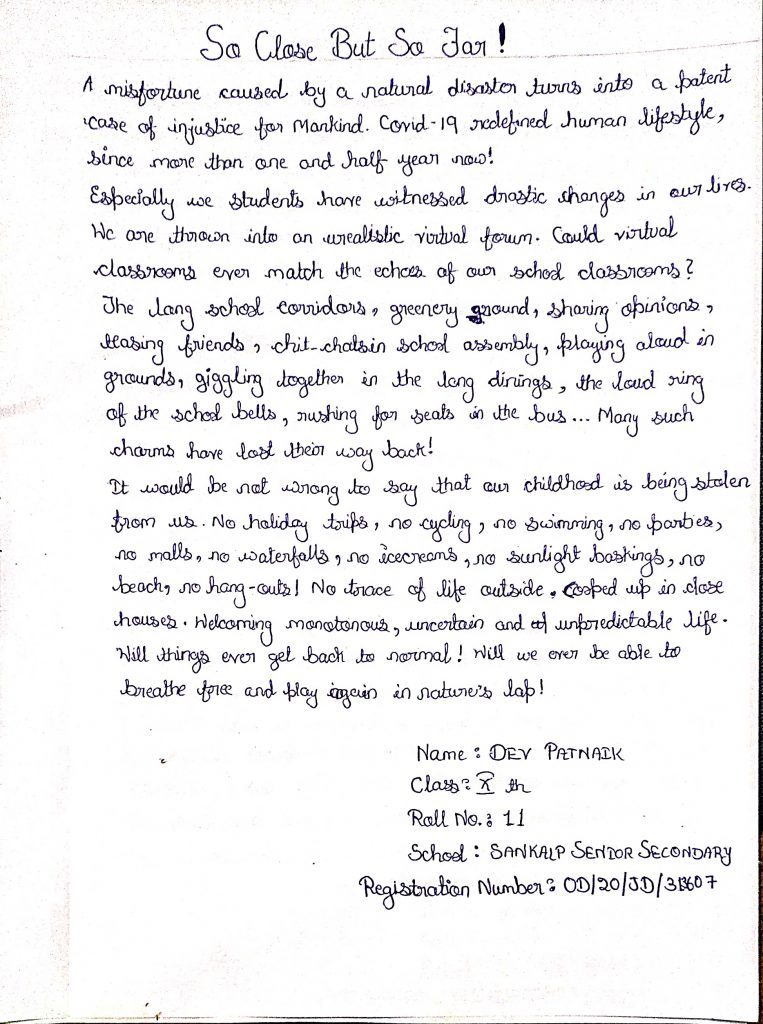 So Close But So Far!
A misfortune caused by a natural disaster turns into a patent
case of injustice for Mankind. Covid-19 redefined human lifestyle,
since more than one and half year now!
Especially we students have witnessed drastic changes in our lives.
We are thrown into an unrealistic virtual forum. Could virtual
classrooms ever match the echoes of our school classrooms?
The long school corridors, greenery ground, sharing opinions,
teasing friends, chit-chats in school assembly, playing aloud in
grounds, giggling together in the long dinings, the loud ring
of the school bells, rushing for seats in the bus... Many such
charms have lost their way back!
It would be not wrong to say that our childhood is being stolen
from us. No holiday trips, no cycling, no swimming, no parties,
no malls, no waterfalls, no icecreams, no sunlight baskings, no
beach, no hang-outs! No trace of life outside. Cooped up in close
houses. Welcoming monotonous, uncertain and unpredictable life.
Will things ever get back to normal! Will we ever be able to
breathe free and play again in nature's lap!
Name: DEV PATNAIK
Class: X th
Roll No.: 11
School: SANKALP SENIOR SECONDARY
Registration Number: OD/20/JD/